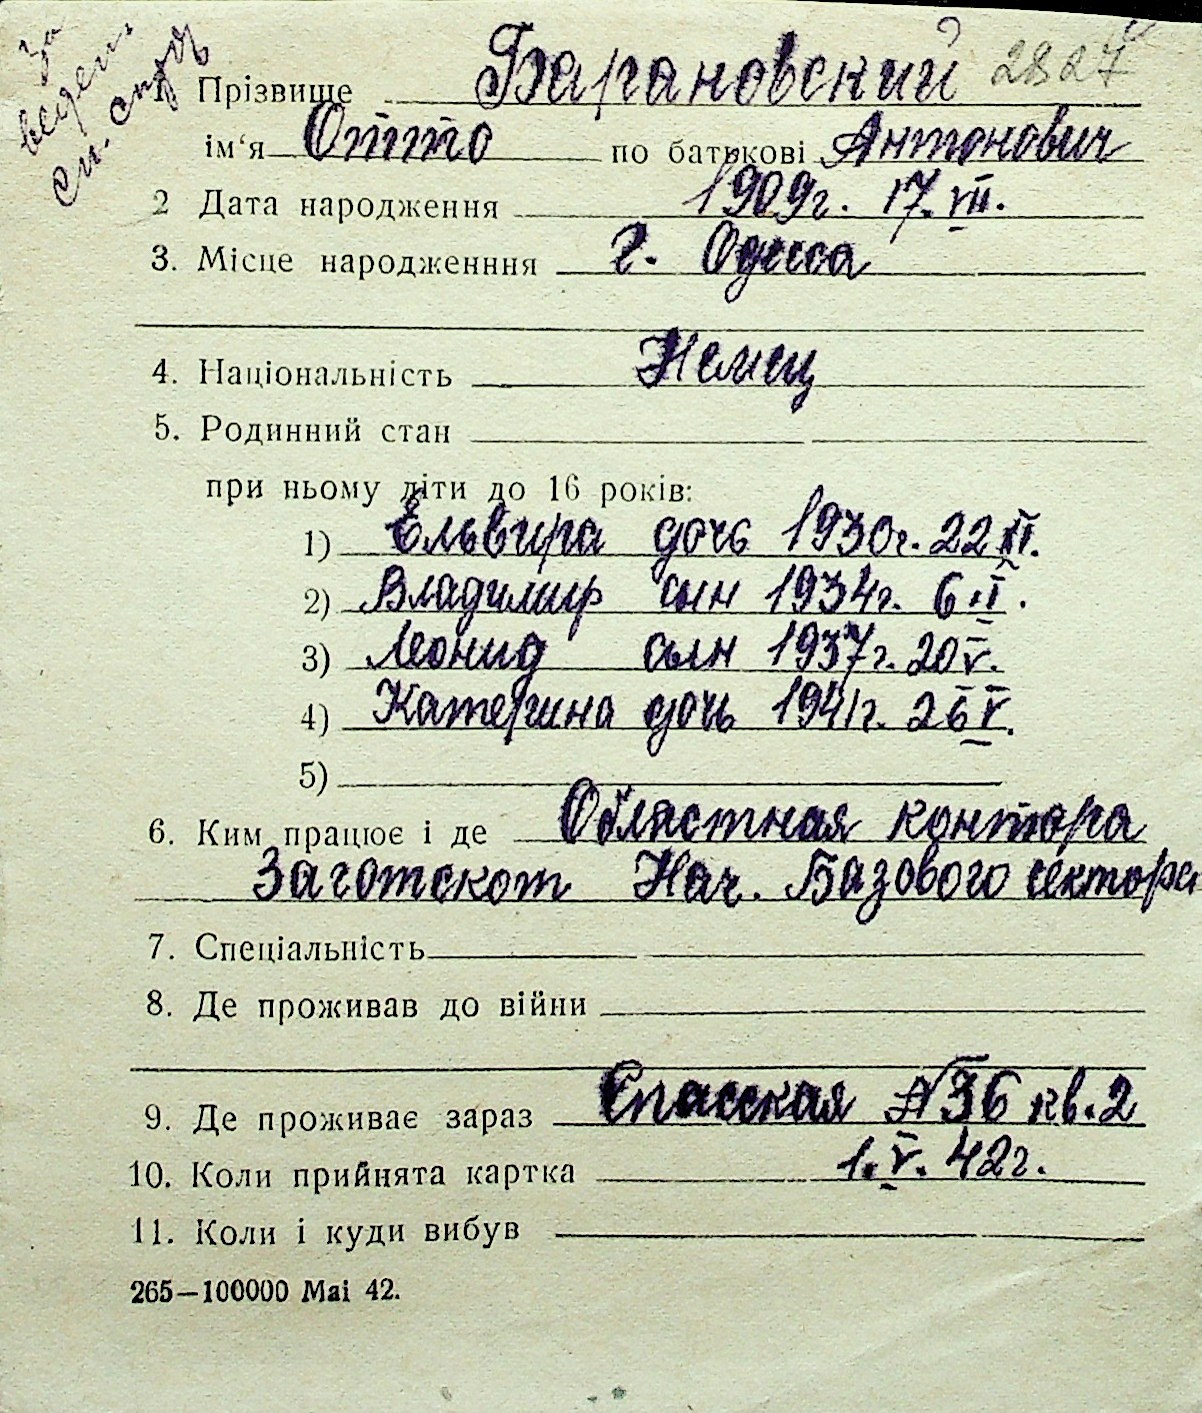 За
веден.
см. спр
1 Прізвище Барановский 2827
ім‘я Отто по батькові Антонович
2 Дата народження 1909г. 17.VII.
3. Місце народженння г. Одесса
4. Національність Немец
5. Родинний стан
при ньому діти до 16 років:
1) Ельвира дочь 1930г. 22
2) Владимир сын 1934г. 6.II.
3) Леонид сын 1937г. 20 V.
4) Катерина дочь 1941г. 26 V.
5)
6. Ким працює і де Областная контора
Заготскот Нач. Базового сектора
7. Спеціальність
8. Де проживав до війни
9. Де проживає зараз Спасская №36 кв.2
10. Коли прийнята картка 1.V.42г.
11. Коли і куди вибув
265—100000 Mai 42.